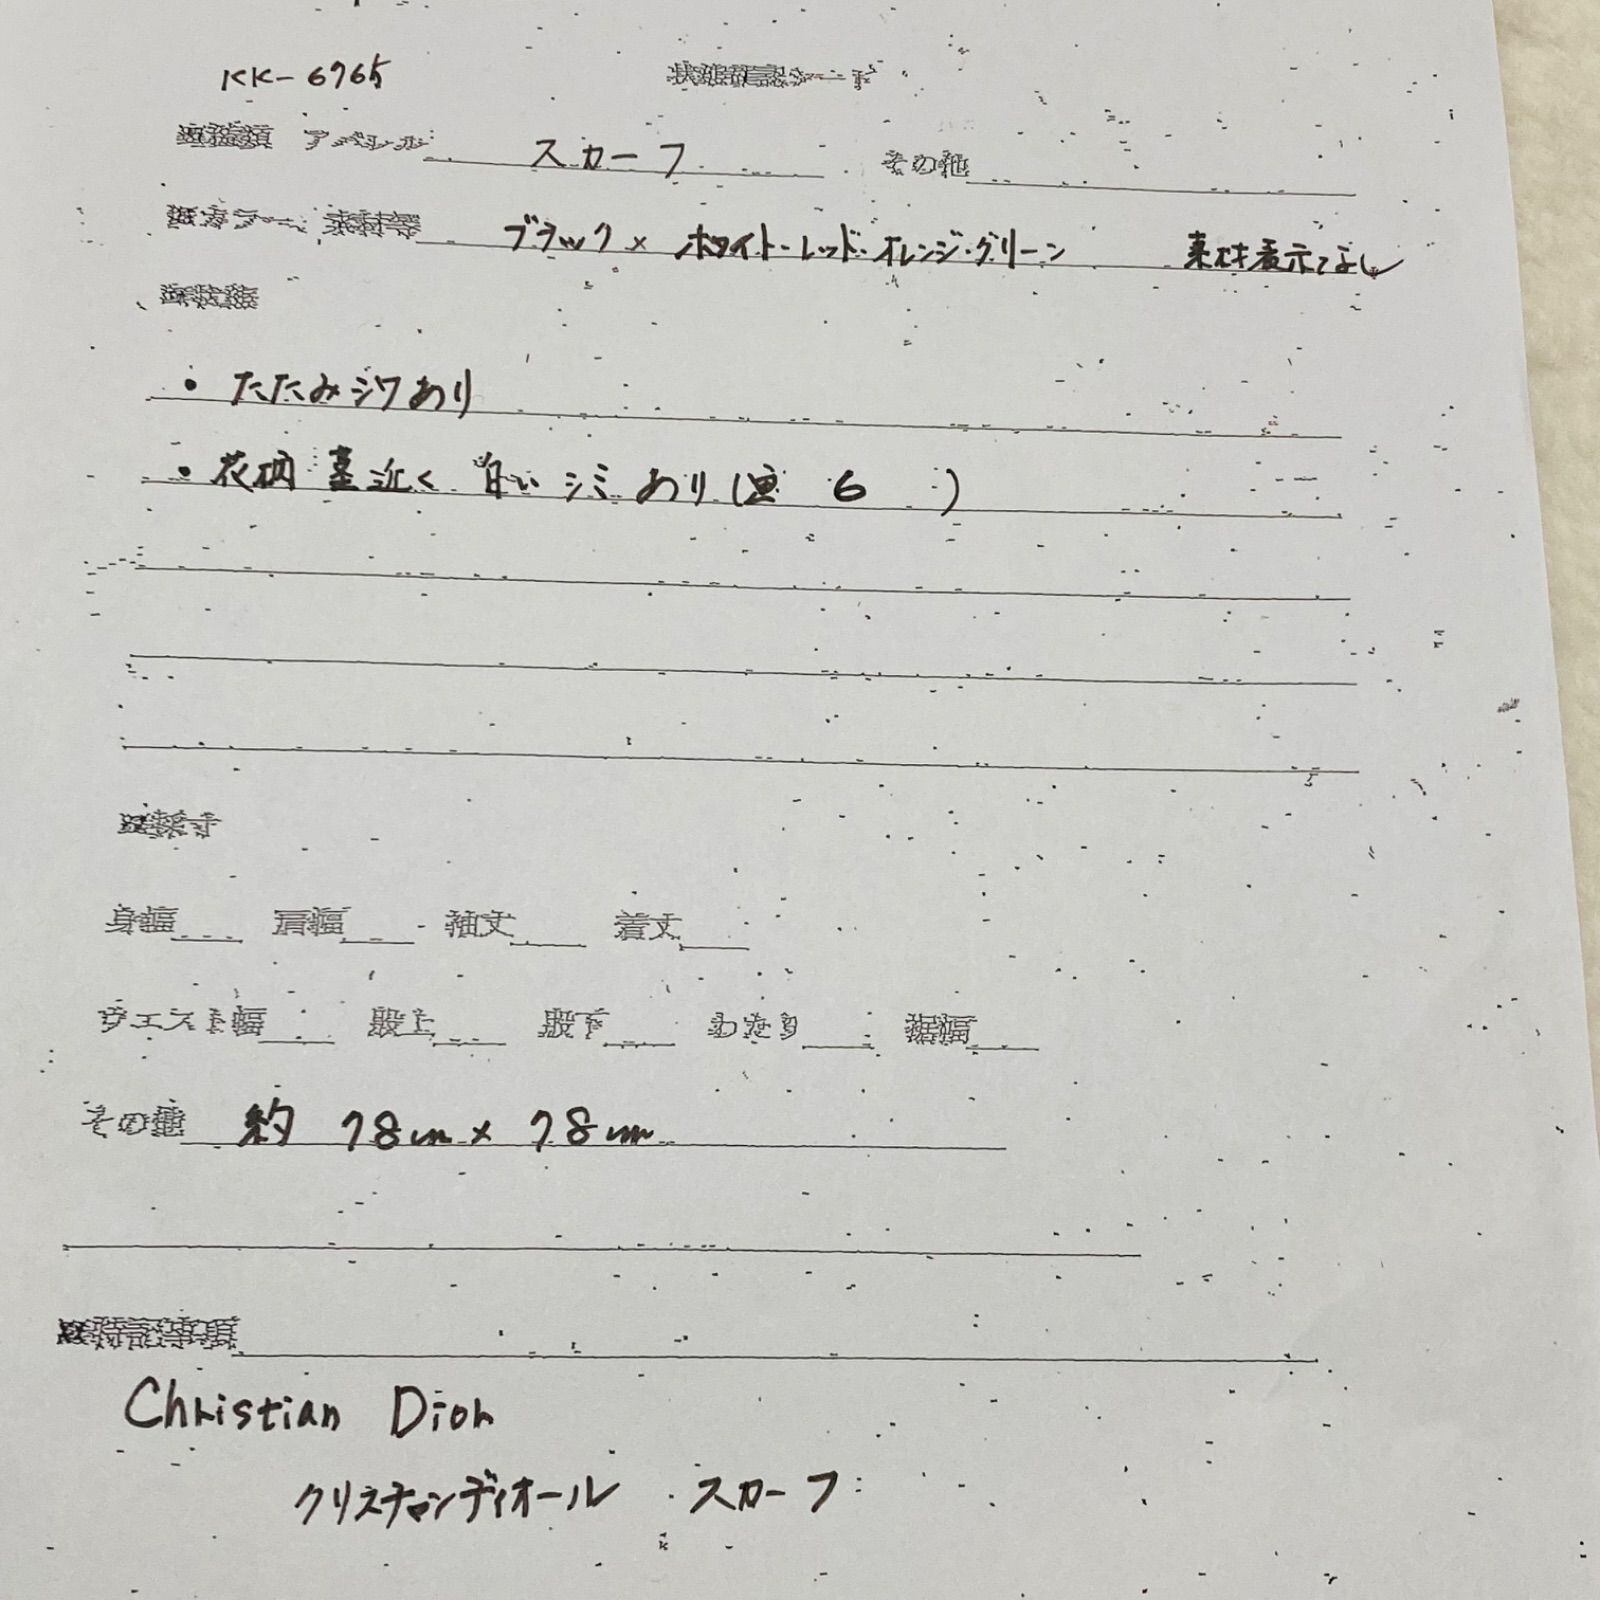 KK-6965 状態確認シート
種類 アパレル スカーフ その他
カラー・素材等 ブラック× ホワイト・レッド・オレンジ・グリーン 素材表示なし
状態
・たたみジワあり
・花柄 茎近く 白い シミ あり(画 6 )
採寸
身幅 肩幅 袖丈 着丈
ウエスト幅 股上 股下 わたり 裾幅
その他 約 78cm × 78cm
特記事項
Christian Dior
クリスチャンディオール スカーフ